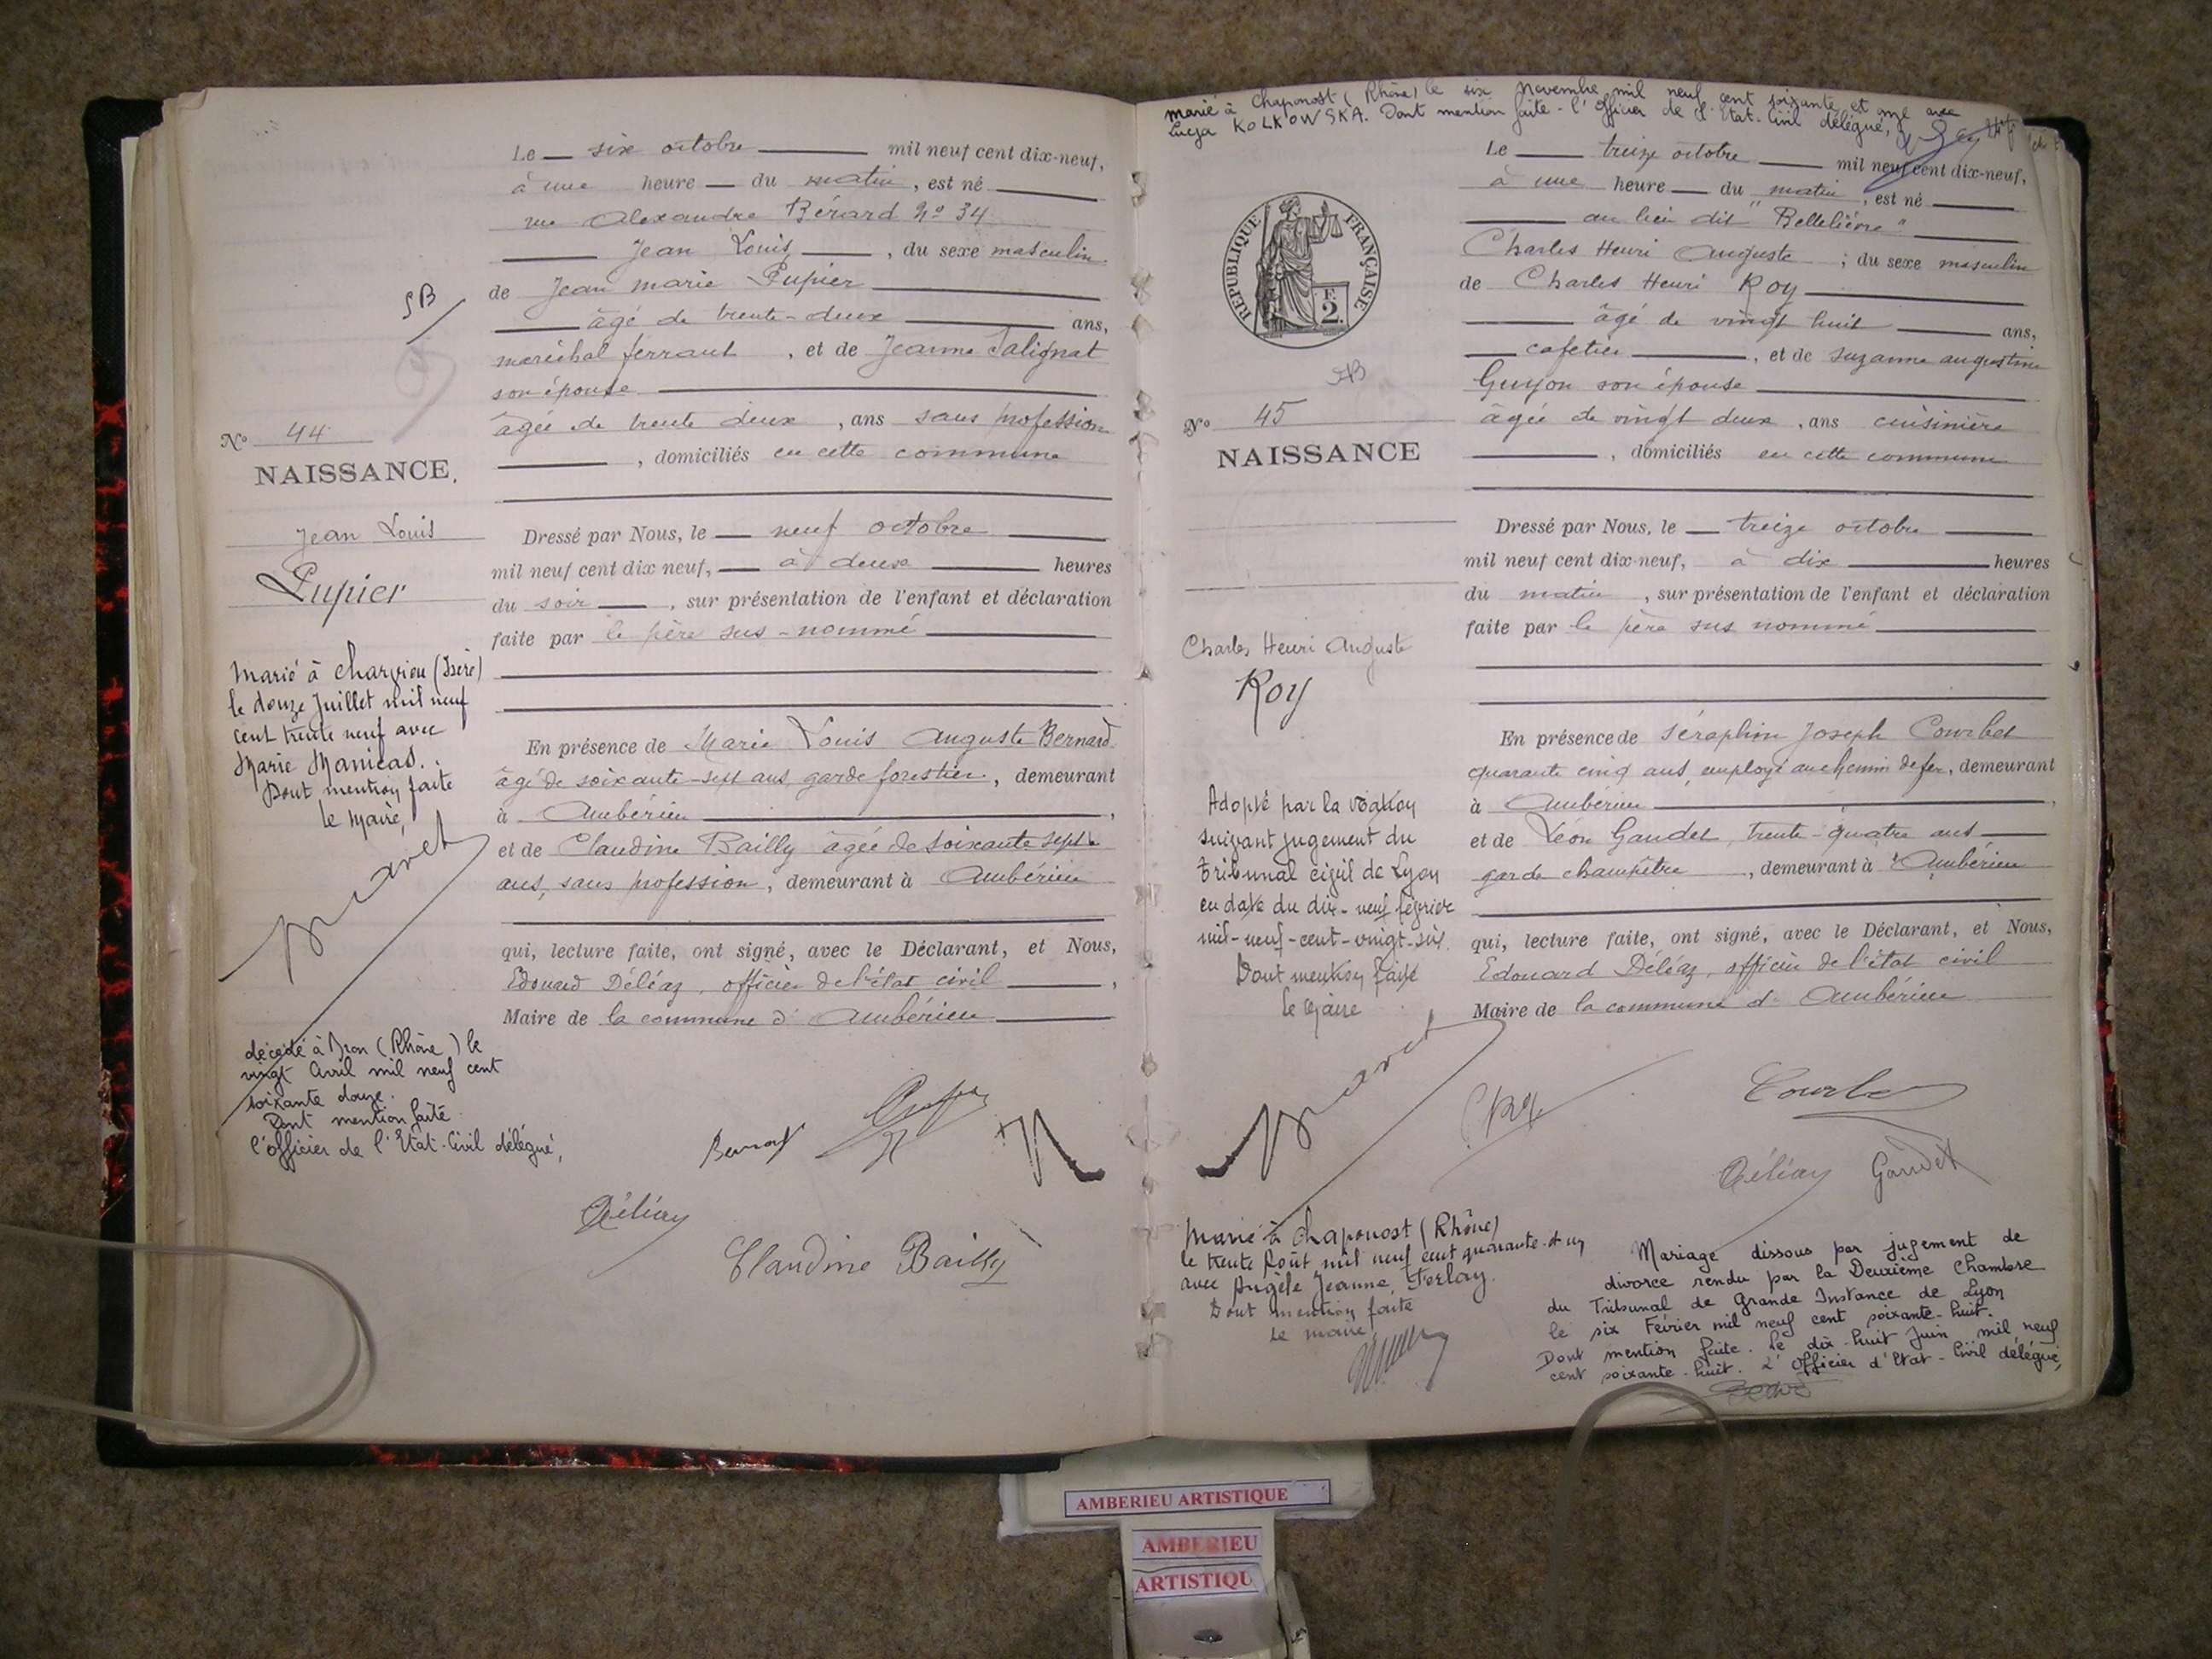 Le six octobre mil neuf cent dix-neuf,
à une heure du matin, est né
rue Alexandre Bérard No 34
Jean Louis, du sexe masculin
de Jean Marie Pupier
âgé de trente-deux ans,
maréchal ferrant, et de Jeanne Salignat
son épouse
âgée de trente deux, ans sans profession
, domiciliés en cette commune
SB
No 44
NAISSANCE.
Jean Louis
Pupier
Dressé par Nous, le neuf octobre
mil neuf cent dix neuf, à deux heures
du soir, sur présentation de l'enfant et déclaration
faite par le père sus-nommé
En présence de Marie Louis Auguste Bernard
âgé de soixante-sept ans, garde forestier, demeurant
à Ambérieu,
et de Claudine Bailly âgée de soixante sept
ans, sans profession, demeurant à Ambérieu
qui, lecture faite, ont signé, avec le Déclarant, et Nous,
Edouard Déléaz, officier de l'état civil,
Maire de la commune d'Ambérieu
Marié à Charvieu (Isère)
le douze Juillet mil neuf
cent trente neuf avec
Marie
Dont mention faite
le Maire,
décédé à Bron (Rhône) le
vingt Avril mil neuf cent
soixante douze.
Dont mention faite
l'officier de l'Etat-Civil délégué,
Déléaz
Claudine Bailly
marié à Chaponost (Rhône) le six Novembre mil neuf cent soixante et onze avec
Lucja KOLKOWSKA. Dont mention faite - l'Officier de l'Etat-Civil délégué,
Le treize octobre mil neuf cent dix-neuf,
à une heure du matin, est né
au lieu dit "Bellelièvre"
Charles Henri Auguste; du sexe masculin
de Charles Henri Roy
âgé de vingt huit ans,
cafetier, et de Suzanne Augustine
Guyon son épouse
âgée de vingt deux, ans cuisinière
, domiciliés en cette commune
REPUBLIQUE FRANÇAISE
F.
2.
SB
No 45
NAISSANCE
Charles Henri Auguste
Roy
Dressé par Nous, le treize octobre
mil neuf cent dix-neuf, à dix heures
du matin, sur présentation de l'enfant et déclaration
faite par le père sus nommé
En présence de Séraphin Joseph Courbet
quarante cinq ans, employé au chemin de fer, demeurant
à Ambérieu,
et de Léon Gaudet, trente-quatre ans
garde champêtre, demeurant à Ambérieu
qui, lecture faite, ont signé, avec le Déclarant, et Nous,
Edouard Déléaz, officier de l'état civil
Maire de la commune d'Ambérieu
Adopté par la Nation
suivant jugement du
Tribunal civil de Lyon
en date du dix-neuf février
mil-neuf-cent-vingt-six.
Dont mention faite
Le Maire
Déléaz
Gaudet
Marié à Chaponost (Rhône)
le trente Août mil neuf cent quarante et un
avec Angèle Jeanne Ferlay.
Dont mention faite
Le maire,
Mariage dissous par jugement de
divorce rendu par la Deuxième Chambre
du Tribunal de Grande Instance de Lyon
le six Février mil neuf cent soixante-huit.
Dont mention faite. Le dix-huit Juin mil neuf
cent soixante-huit. L'Officier d'Etat-Civil délégué,
AMBERIEU ARTISTIQUE
AMBERIEU
ARTISTIQU